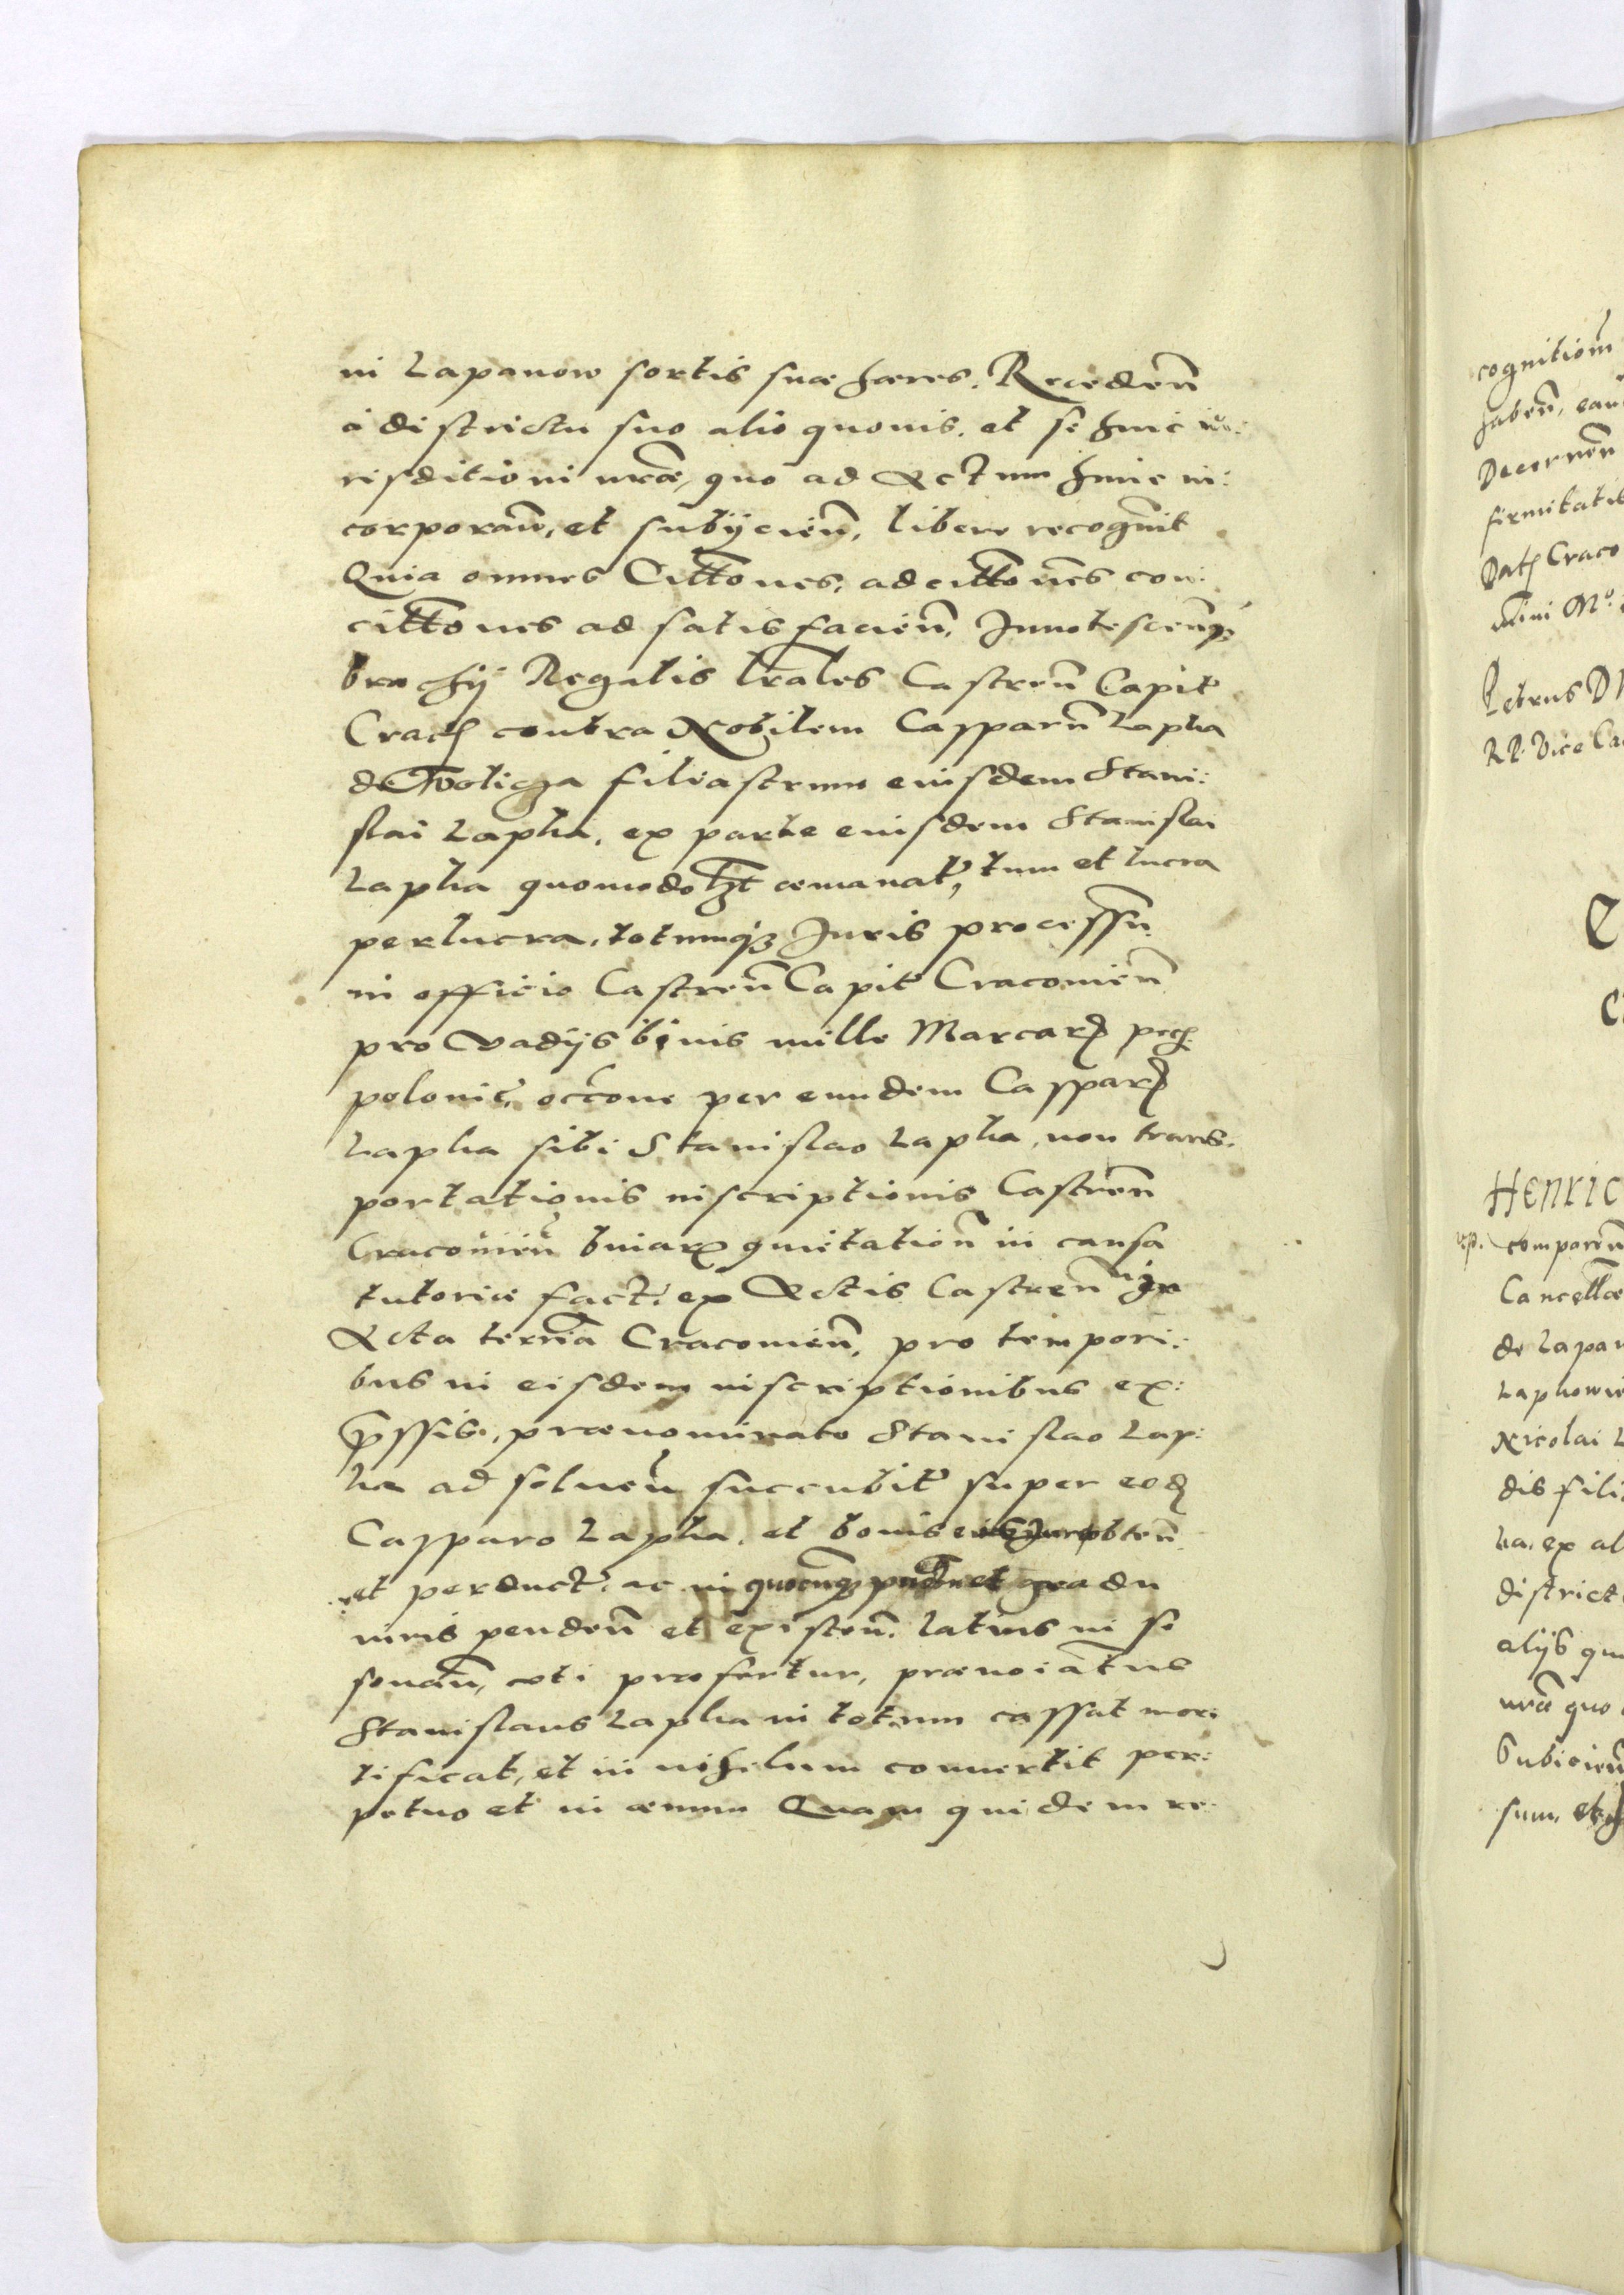 in Lapanow sortis suæ hæres. Receden̄
à districtu suo alio quouis, et se huic iu:
risditioni nr̄æ, quo ad Actum hunc in:
corporan̄, et subijcien̄, libere recognit
Quia omnes Citt̄ones, adcitt̄ones con:
citt̄ones ad satisfacien̄, Innotescen̄q3
brachij Regalis l̄rales Castren̄ Capit̄
Crac̄ contra Nobilem Casparū Lapka
de filiastrum eiusdem Stani:
slai Lapka, ex parte eiusdem Stanislai
Lapka quomodol3t emanat̄, tum et lucra
perlucra, totumq3 Iuris processū
in officio Castren̄ Capit̄ Cracouien̄
pro Vadijs binis mille Marcar̄ pec̄:
polonic̄, occ̄one per eundem Caspar̄
Lapka sibi Stanislao Lapka, non trans:
portationis inscriptionis Castren̄
Cracouien̄ binar̄ quitation̄ in causa
tutoriæ fact̄, ex Actis Castren̄ in
Acta terrīa Cracouien̄, pro tempori:
bus in eisdem inscriptionibus ex:
p̄ssis, prænominato Stanislao Lap:
ka ad soluen̄ succubit̄ super eod̄
Casparo Lapka, et bonis eius Iure obten̄
et perduct̄, ac in quocunq3 puncto et gradu
iuris penden̄ et existen̄, latius in se
sonan̄, uti præfertur, prænoīatus
Stanislaus Lapka in totum cassat mor:
tificat, et in nihilum conuertit per:
petuo et in æuum Quam quidem re:
cognitiom̄
haben̄,
Decernen̄
firmitatis
Dat̄ Craco
mini Mo
Petrus D
RP. Vice Ca
C
C
Henric
comparen̄
Cancell̄æ
de Lapan
Lapkowi
Nicolai L
dis fili
ka, ex al
district
alijs qu
nr̄æ quo
Subicien̄
sum, et